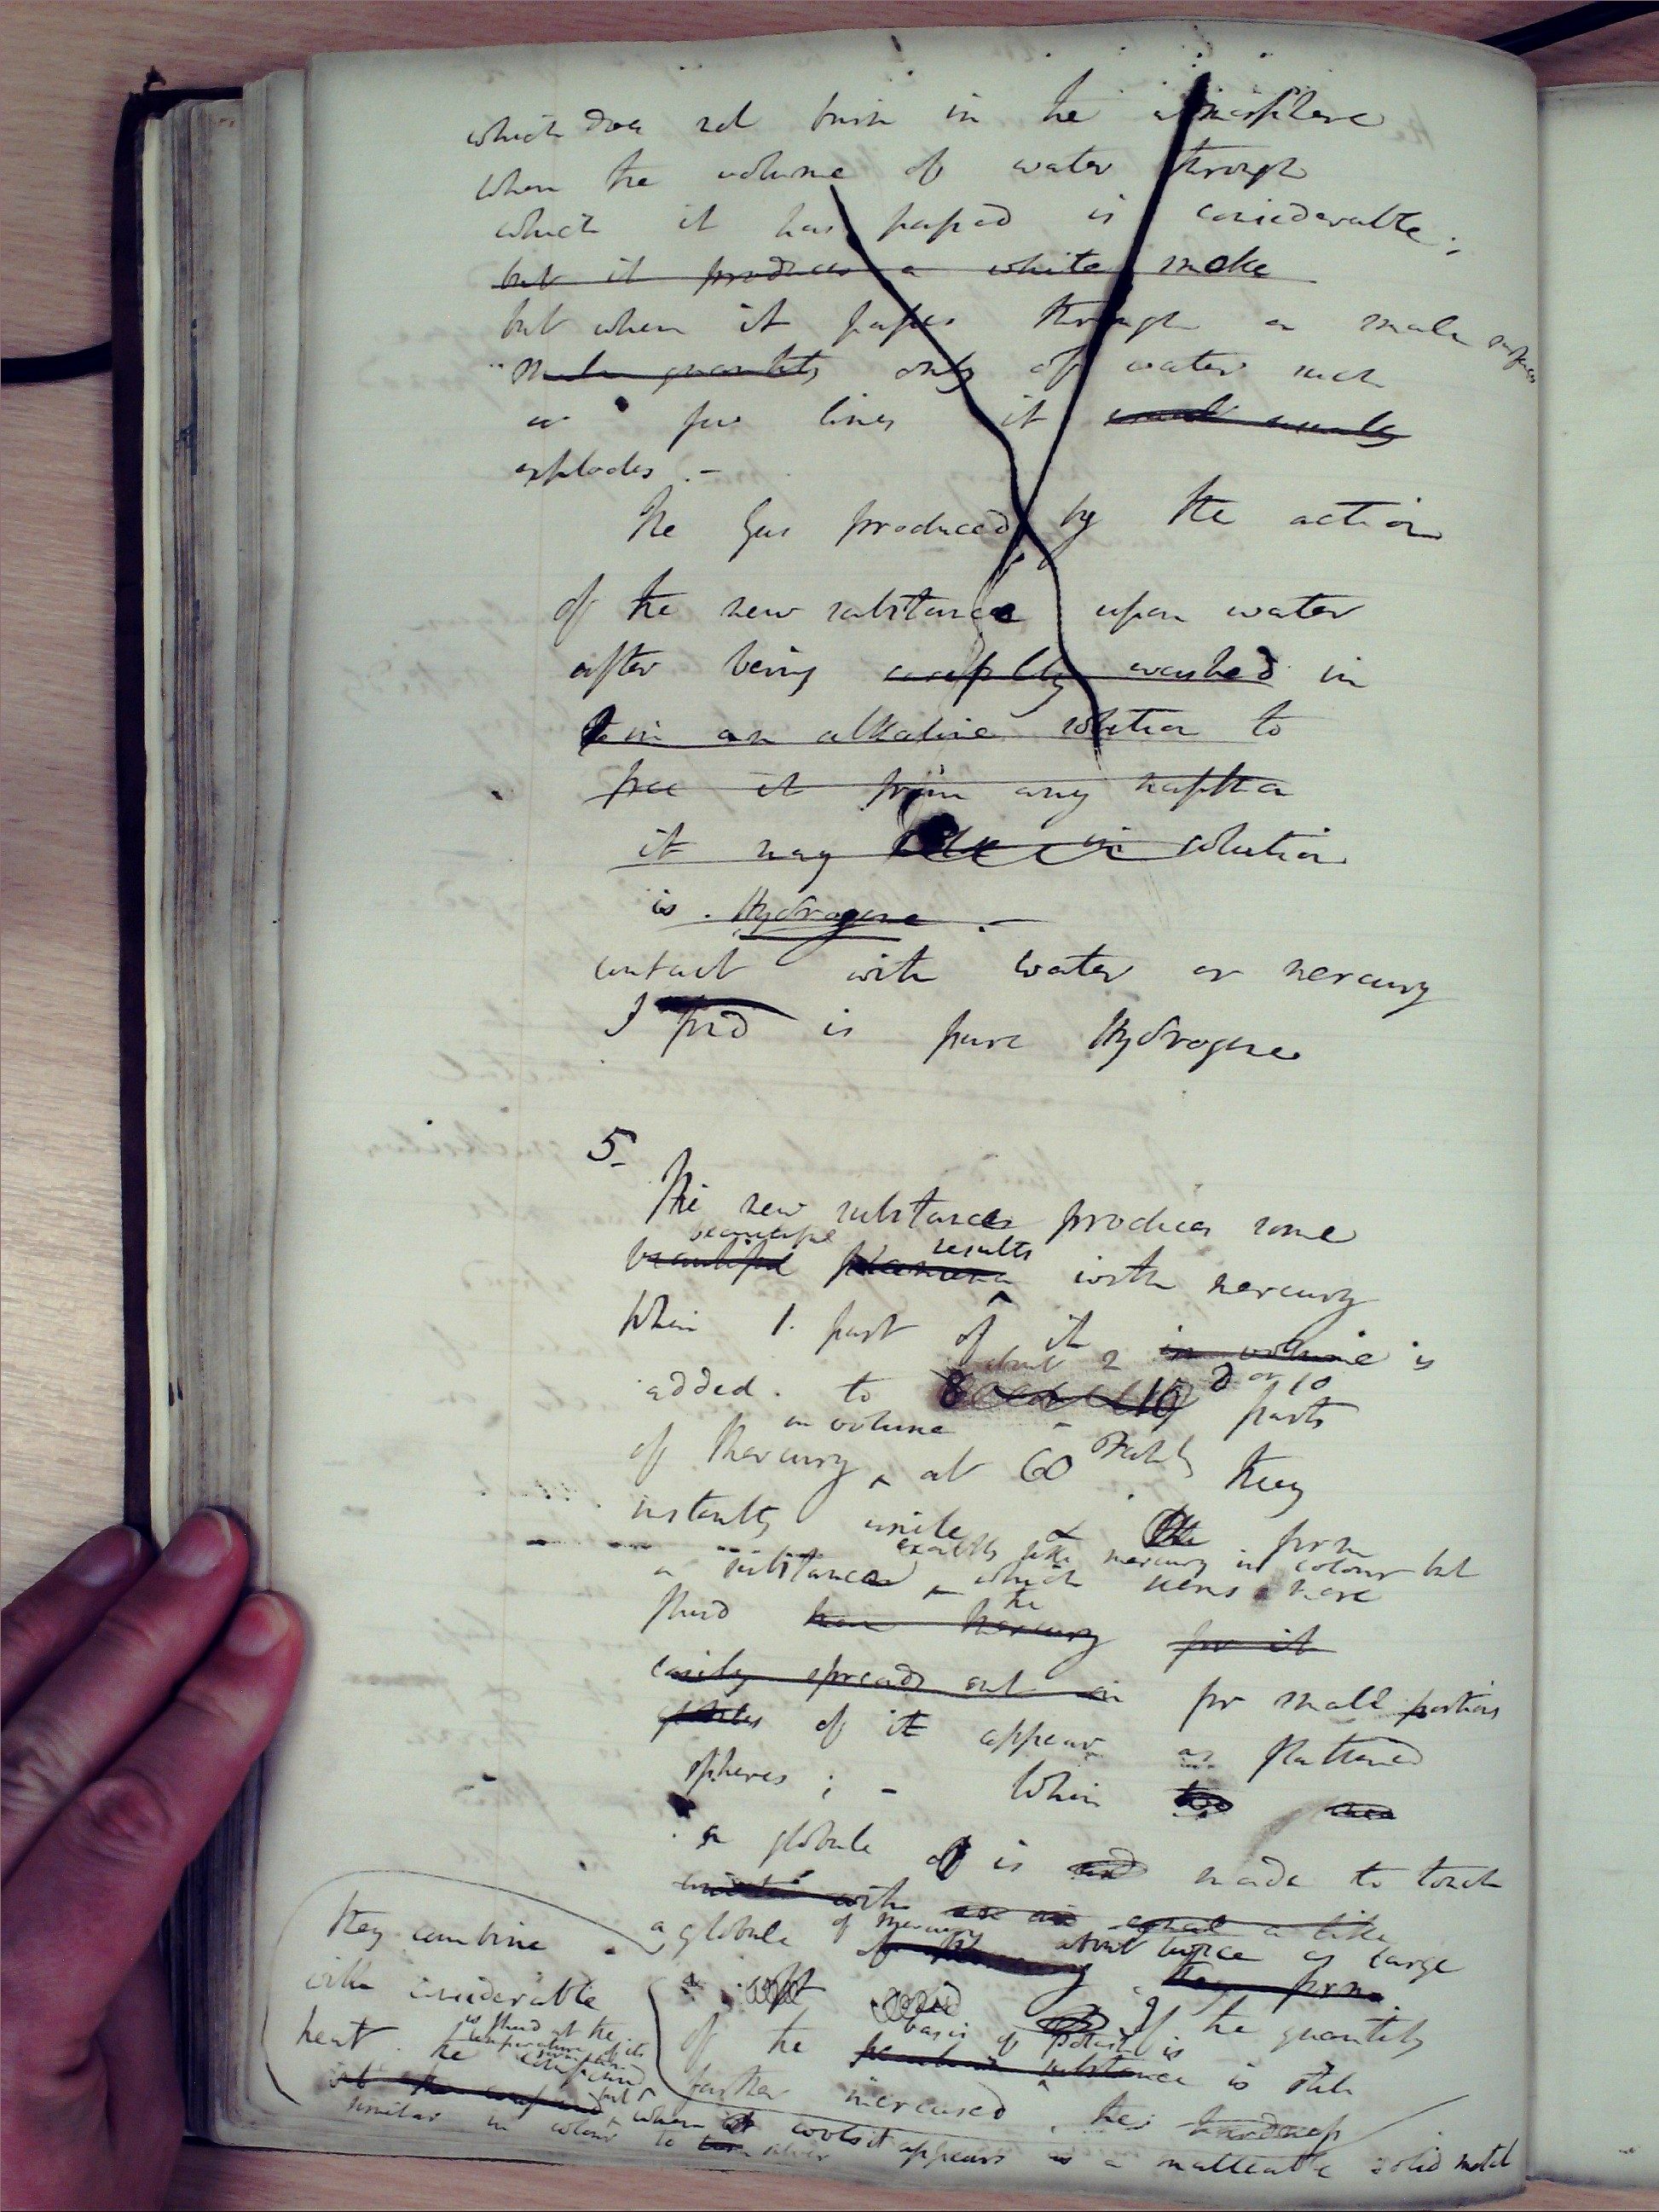 which does not burn in the atmosphere
when the volume of water through
which it has passed is considerable;
but it produces a white smoke
but when it passes through a small surface
small quantity only of water such
as few lines it usually
explodes. —
The Gas produced by the action
of the new substance upon water
after being carefully washed in
in an alkaline solution to
free it from any naptha
it may in solution
is. Hydrogene. —
contact with water or mercury
I find is pure Hydrogene
5.
The new substance produces some
beautiful results
beautiful phenomena with mercury
When 1. part of it in volume is
about 2
added. to 8 10 or 10 parts
in volume
of Mercury, at 60 Faht they
instantly unite & the form
exactly like mercury in colour but
a substance which seems more
fluid than the mercury for it
easily spreads out in for small portions
globules of it appear as flattened
spheres; - When
a globule is made to touch
with equal a like
a globule of Mercury about twice as large
of Mercury they form
They combine
with considerable
heat. The compound
is fluid at the
temperature of its
formation
but when it cools it appears as a malleable solid metal
similar in colour to silver
If the quantity
basis of potash is
of the substance is still
further increased, the hardness